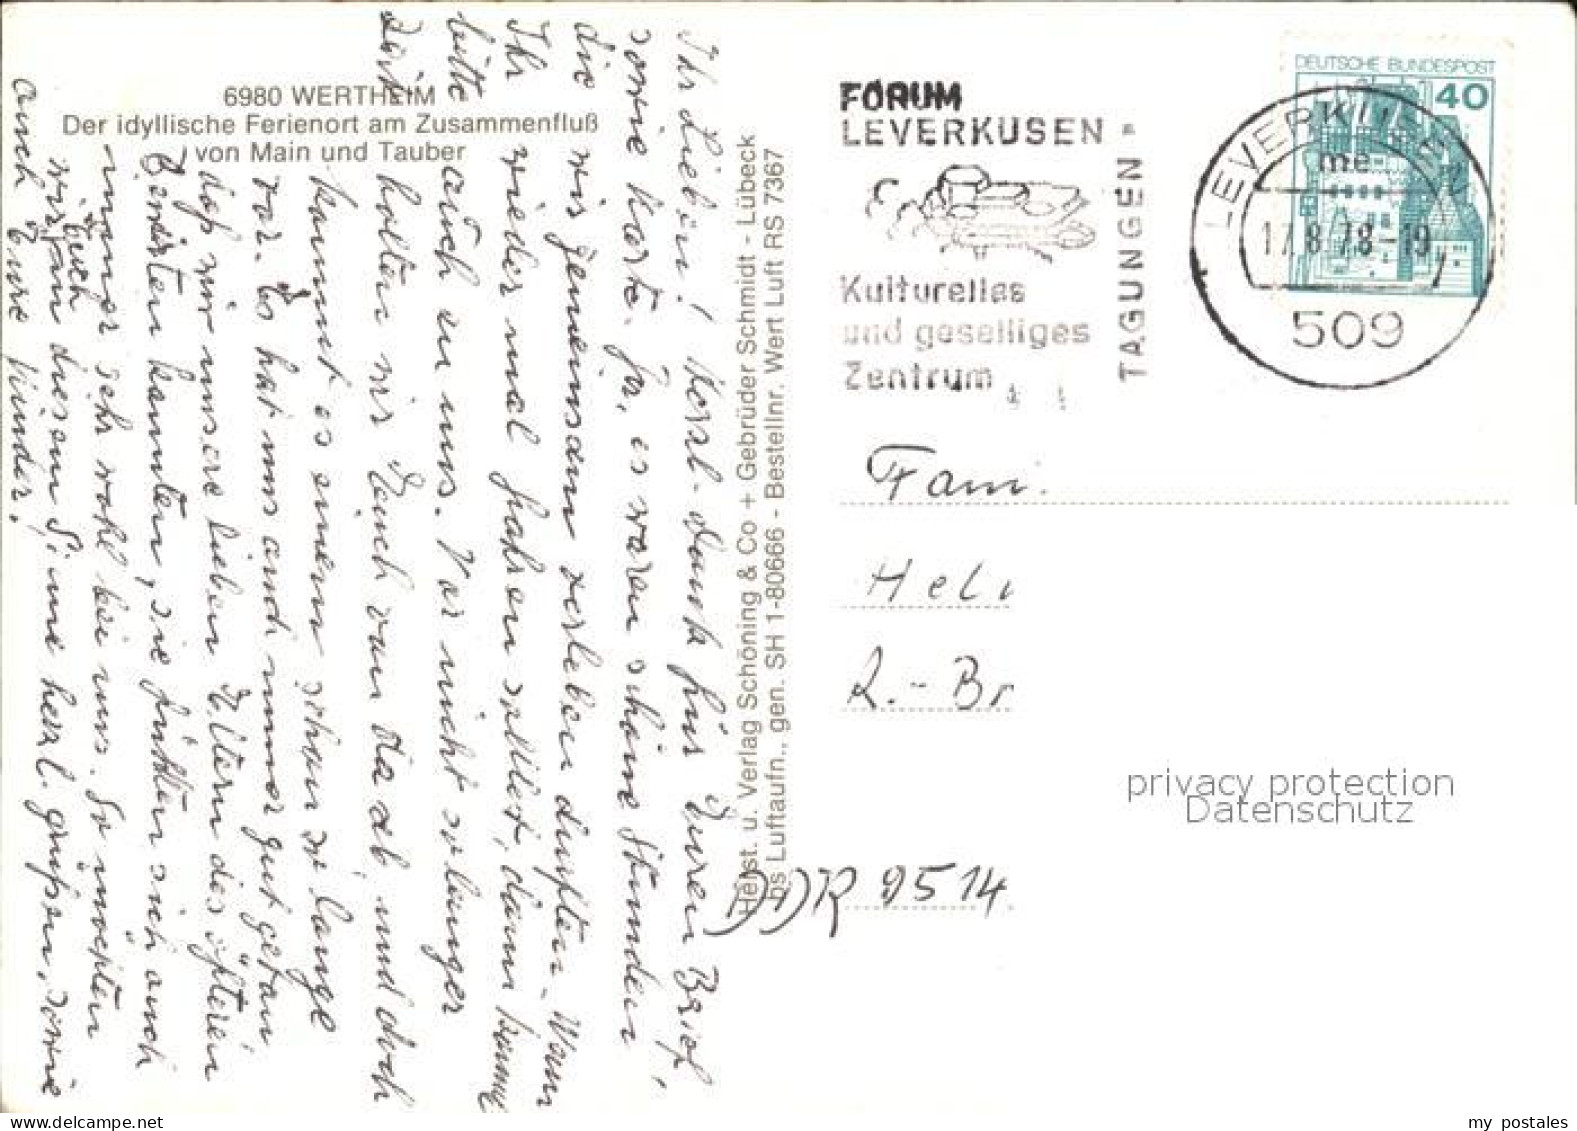 6980 WERTHEIM
Der idyllische Ferienort am Zusammenfluß
von Main und Tauber
Ihr Lieben! Herzl. Dank für Euren Brief,
sowie Karte. Ja, es waren schöne Stunden
die wir gemeinsam verleben durften. Wenn
Ihr wieder mal fahren solltet, dann kommt
bitte auch zu uns. Vor nicht so langer
Zeit holten wir Euch von da ab, und doch
kommt es einem schon so lange
vor. Es hat uns auch immer gut getan
daß wir unsere lieben Eltern des öfteren
bewirten konnten, sie fühlten sich auch
immer sehr wohl bei uns. So möchten
wir Euch in diesem Sinne herzl. grüßen, sowie
auch Eure Kinder.
Herst. u. Verlag Schöning & Co + Gebrüder Schmidt - Lübeck
bs Luftaufn., gen. SH 1-80666 - Bestellnr. Wert Luft RS 7367
FORUM
LEVERKUSEN
Kulturelles
und geselliges
Zentrum
TAGUNGEN
DEUTSCHE BUNDESPOST
40
LEVERKUSEN
me
17.8.78-19
509
Fam.
Hel
R.-Br
DDR 9514
privacy protection
Datenschutz
www.delcampe.net
my postales